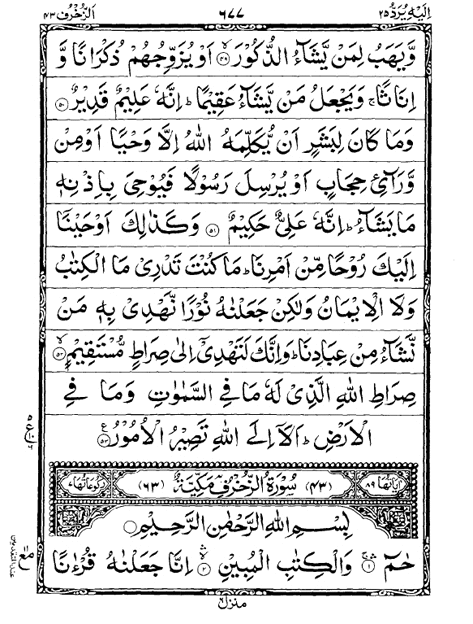 اِلَيۡهِ يُرَدُّ ٢٥ ٦٧٧ اَلزُّخۡرُف ٤٣
وَّيَهَبُ لِمَنۡ يَّشَآءُ الذُّكُوۡرَ ۙ‏﴿۴۹﴾ اَوۡ يُزَوِّجُهُمۡ ذُكۡرَانًا وَّ
اِنَاثًا ۚ وَيَجۡعَلُ مَنۡ يَّشَآءُ عَقِيۡمًا ؕ اِنَّهٗ عَلِيۡمٌ قَدِيۡرٌ ﴿۵۰﴾
وَمَا كَانَ لِبَشَرٍ اَنۡ يُّكَلِّمَهُ اللّٰهُ اِلَّا وَحۡيًا اَوۡ مِنۡ
وَّرَآئِ حِجَابٍ اَوۡ يُرۡسِلَ رَسُوۡلًا فَيُوۡحِىَ بِاِذۡنِهٖ
مَا يَشَآءُ ؕ اِنَّهٗ عَلِىٌّ حَكِيۡمٌ ﴿۵۱﴾ وَكَذٰلِكَ اَوۡحَيۡنَاۤ
اِلَيۡكَ رُوۡحًا مِّنۡ اَمۡرِنَا ؕ مَا كُنۡتَ تَدۡرِىۡ مَا الۡكِتٰبُ
وَلَا الۡاِيۡمَانُ وَلٰكِنۡ جَعَلۡنٰهُ نُوۡرًا نَّهۡدِىۡ بِهٖ مَنۡ
نَّشَآءُ مِنۡ عِبَادِنَا ؕ وَاِنَّكَ لَتَهۡدِىۡۤ اِلٰى صِرَاطٍ مُّسۡتَقِيۡمٍ ۙ‏﴿۵۲﴾
صِرَاطِ اللّٰهِ الَّذِىۡ لَهٗ مَا فِى السَّمٰوٰتِ وَمَا فِى
الۡاَرۡضِ ؕ اَلَاۤ اِلَى اللّٰهِ تَصِيۡرُ الۡاُمُوۡرُ ﴿۵۳﴾ ع
اٰيَاتُهَا ٨٩ (٤٣) سُوۡرَةُ الزُّخۡرُفِ مَكِّيَّةٌ (٦٣) رُكُوۡعَاتُهَا ٧
بِسۡمِ اللّٰهِ الرَّحۡمٰنِ الرَّحِيۡمِ
حٰمٓ ﴿۱﴾ وَالۡكِتٰبِ الۡمُبِيۡنِ ﴿۲﴾ اِنَّا جَعَلۡنٰهُ قُرۡءٰنًا
منزل ٦